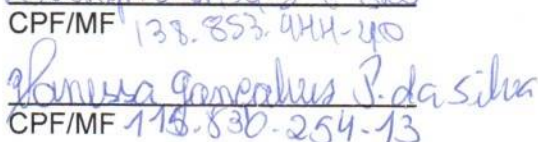 CPF/MF 138.853.444-40
Vanessa Gonçalves P. da Silva
CPF/MF 118.830.254-13